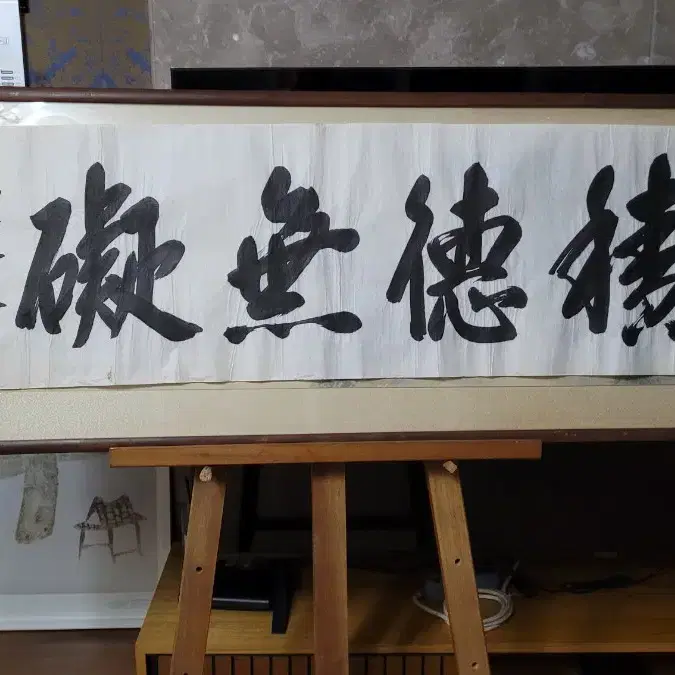 積德無礙